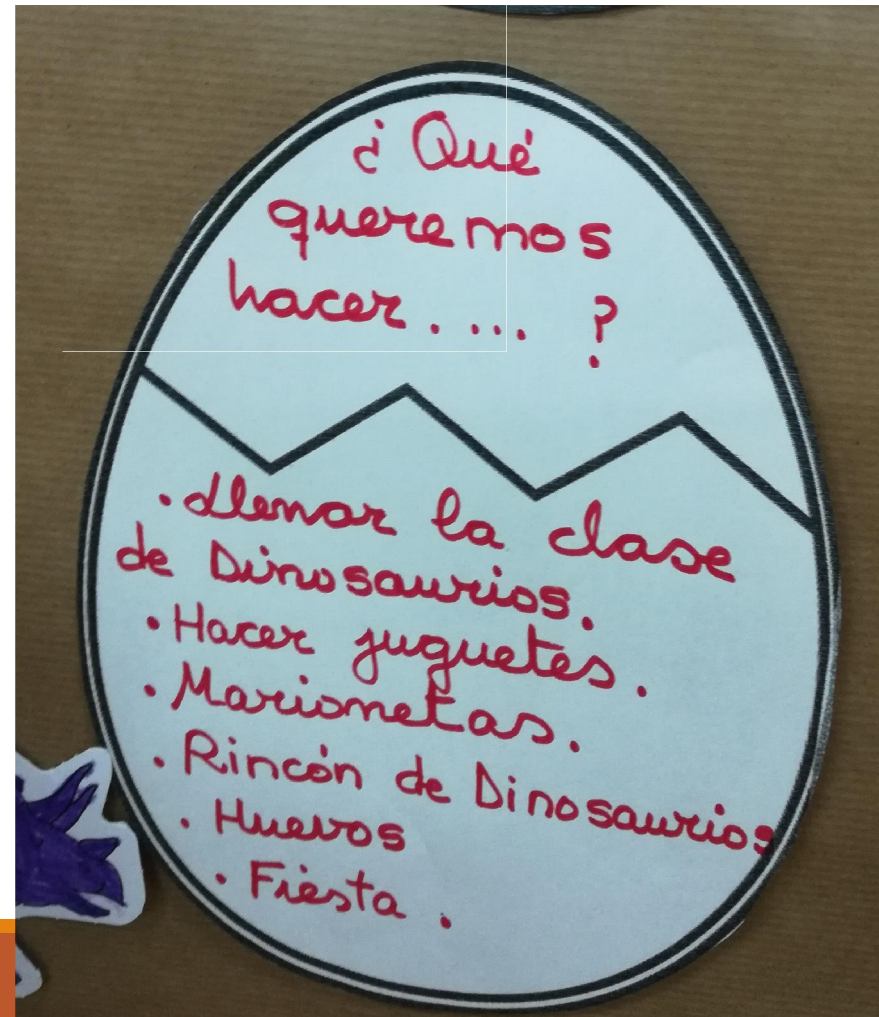 ¿Qué
queremos
hacer.... ?
·Llenar la clase
de Dinosaurios.
·Hacer juguetes.
·Marionetas.
·Rincón de Dinosaurios
·Huevos
·Fiesta.